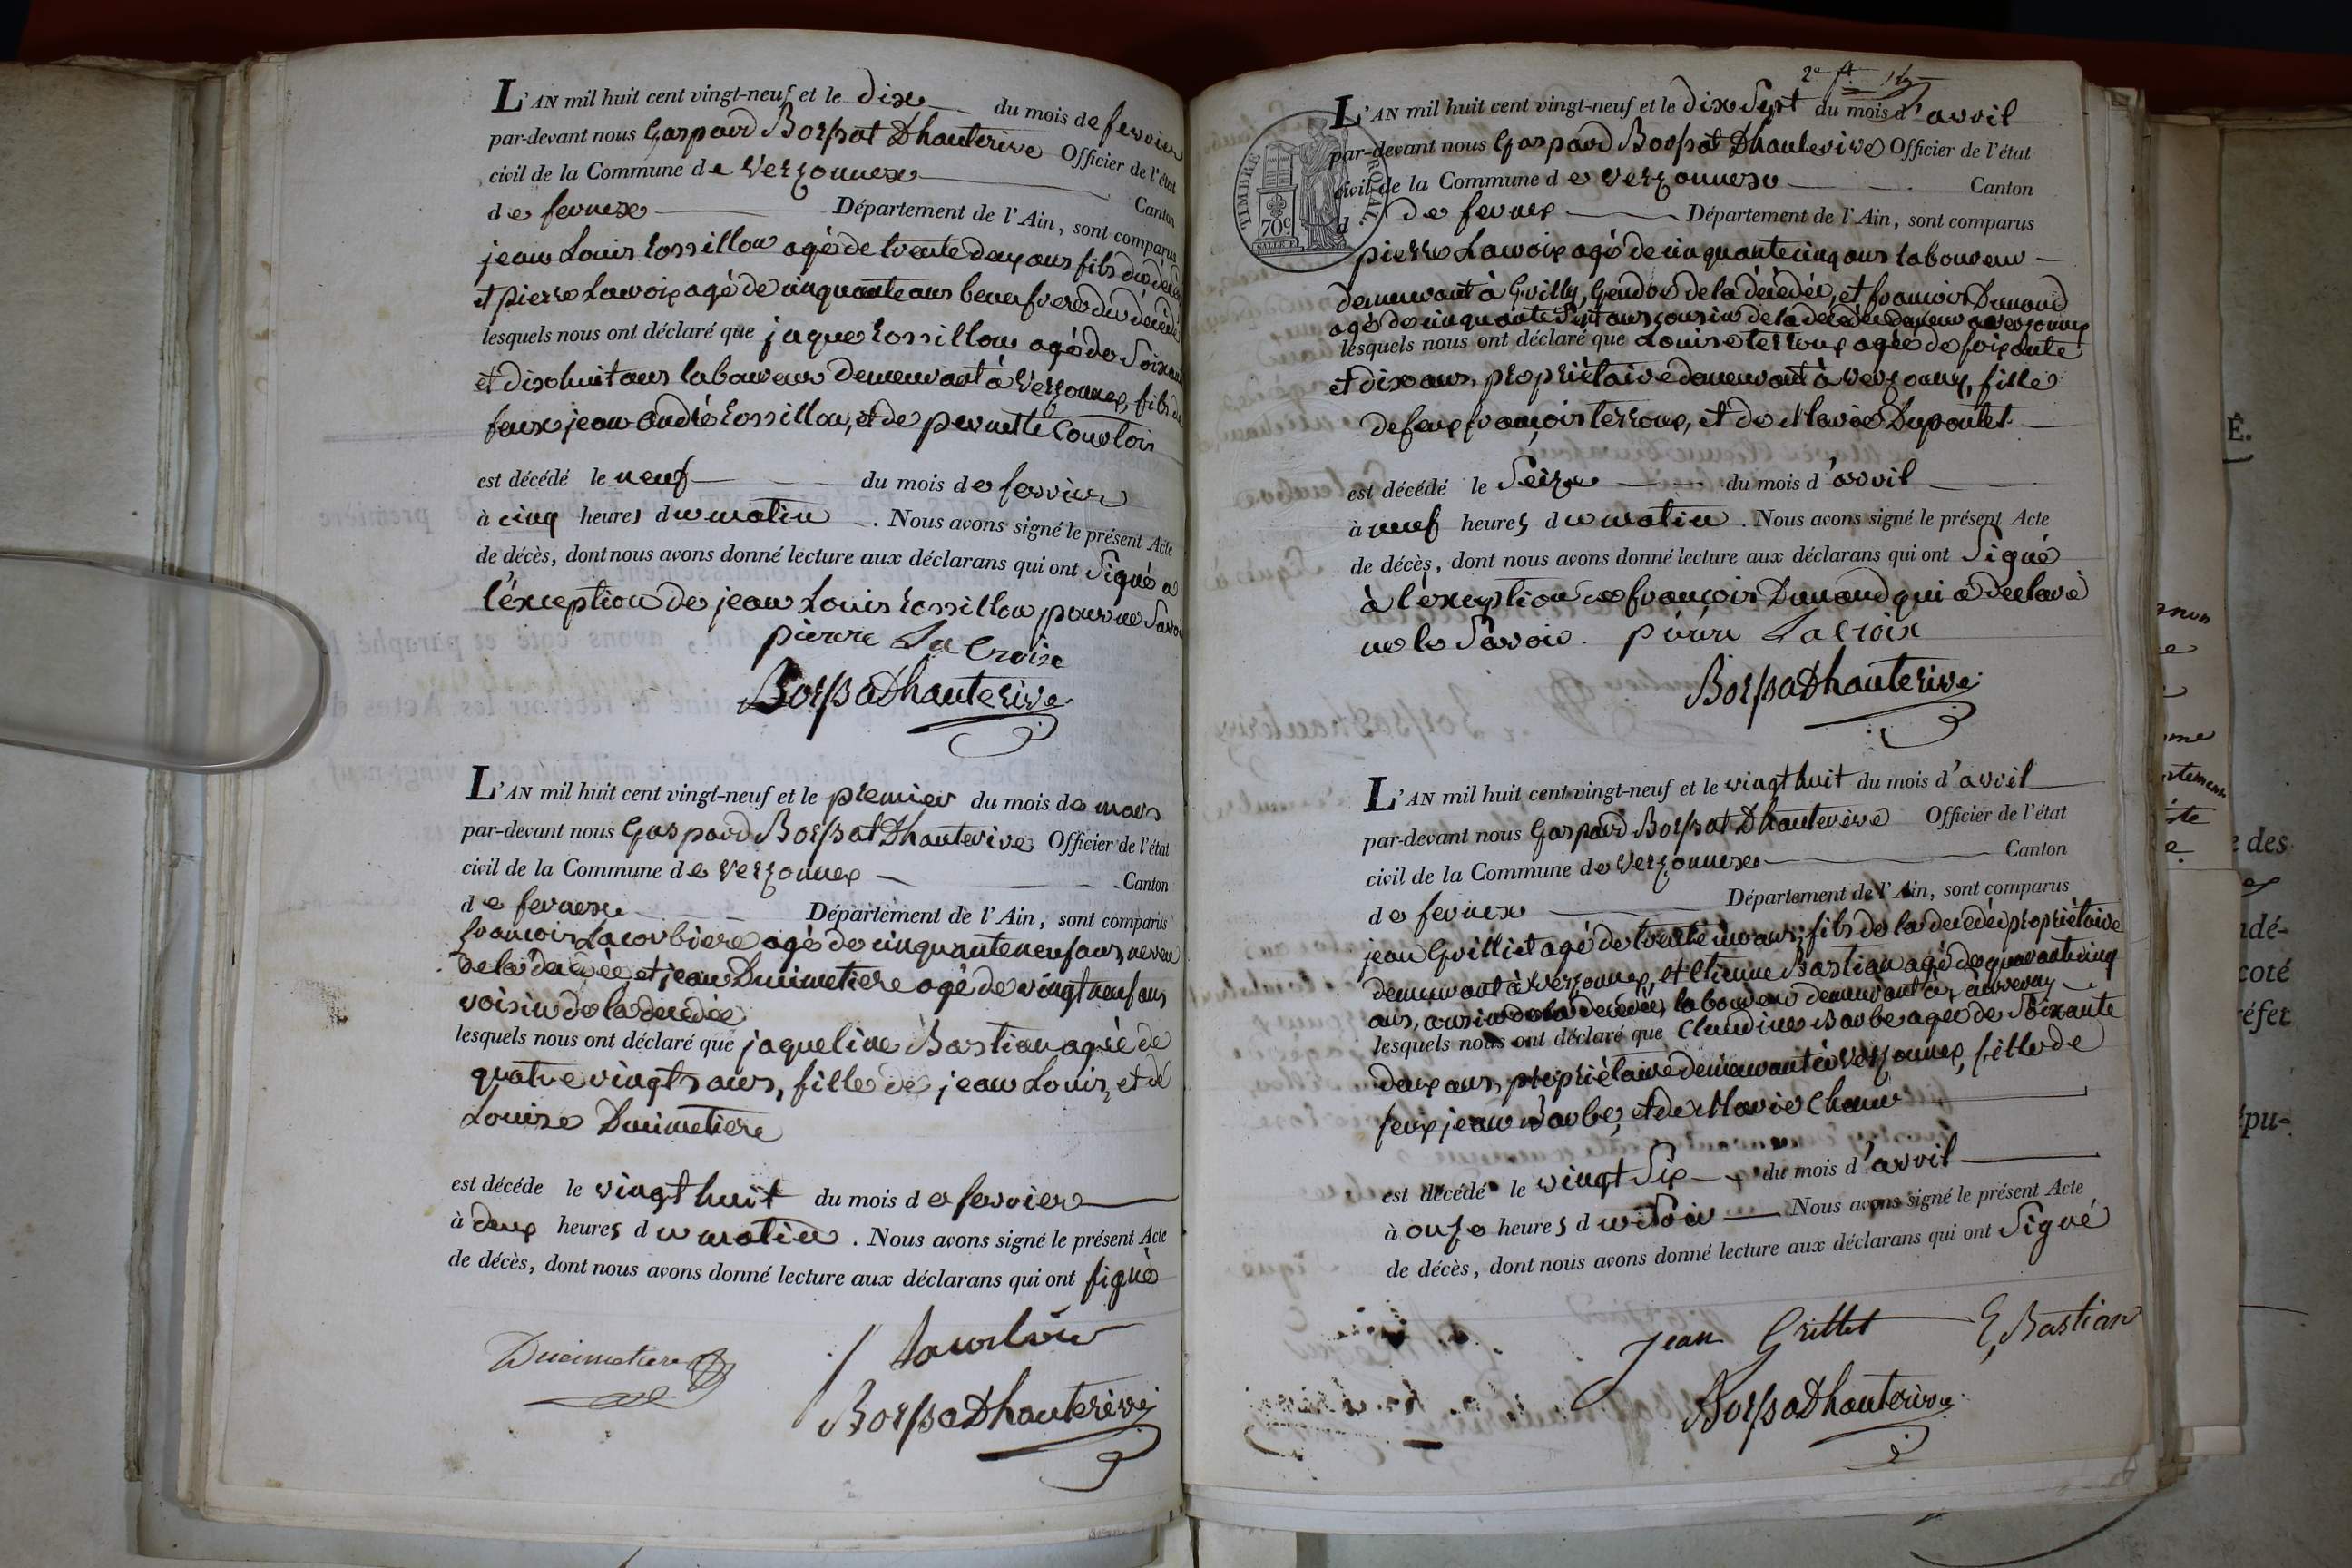 L'AN mil huit cent vingt-neuf et le dix du mois de fevrier
par-devant nous Gaspard Borssat Dhauterive Officier de l'état
civil de la Commune de Versonnex Canton
de fernex Département de l'Ain, sont comparus
jean Louis Rossillon agé de trente deux ans fils du décédé
et pierre Lacroix agé de cinquante ans beaufrere du décédé
lesquels nous ont déclaré que jaque Rossillon agé de Soixante
et dix huit ans laboureur demeurant à Versonnex, fils de
feux jean andré Rossillon, et de pernette Courtois
est décédé le neuf du mois de fevrier
à cinq heures du matin . Nous avons signé le présent Acte
de décès, dont nous avons donné lecture aux déclarans qui ont Signés a
l'éxception de jean Louis Rossillon pour ne Savoir
pierre La Croix
BorssaDhauterive
L'AN mil huit cent vingt-neuf et le premier du mois de mars
par-devant nous Gaspard Borssat Dhauterive Officier de l'état
civil de la Commune de Versonnex Canton
de fernex Département de l'Ain, sont comparus
françois Lacorbiere agé de cinquante neuf ans, neveu
de la décédée, et jean Ducimetiere agé de vingt neuf ans
voisin de la décédée
lesquels nous ont déclaré que jaqueline Bastian agée de
quatre vingts ans, fille de jean Louis, et de
Louise Ducimetiere
est décédé le vingt huit du mois de fevrier
à deux heures du matin . Nous avons signé le présent Acte
de décès, dont nous avons donné lecture aux déclarans qui ont signé
Ducimetiere
BorssaDhauterive
2e f.
TIMBRE ROYAL
70c
L'AN mil huit cent vingt-neuf et le dix Sept du mois d'avril
par-devant nous Gaspard Borssat Dhauterive Officier de l'état
civil de la Commune de Versonnex Canton
d de fernex Département de l'Ain, sont comparus
pierre Lacroix agé de cinquante cinq ans laboureur
demeurant à Grilly, Gendre de la décédée, et françois Dunand
agé de cinquante Sept ans cousin de la décédée demeur a versonnex
lesquels nous ont déclaré que Louise terroux agée de soixante
et dix ans, propriétaire demeurant à Versonnex, fille
de feux françois terroux, et de Marie Dupontet
est décédé le Seize du mois d'avril
à neuf heures du matin . Nous avons signé le présent Acte
de décès, dont nous avons donné lecture aux déclarans qui ont Signé
à l'éxception de françois Dunand qui a declaré
ne le Savoir. pierre La croix
BorssaDhauterive
L'AN mil huit cent vingt-neuf et le vingt huit du mois d'avril
par-devant nous Gaspard Borssat Dhauterive Officier de l'état
civil de la Commune de Versonnex Canton
de fernex Département de l'Ain, sont comparus
jean Grillet agé de trente un ans, fils de la décédée propriétaire
demeurant à Versonnex, et Etienne Bastian agé de quarante cinq
ans, cousin de la décédée, laboureur demeurant à
lesquels nous ont déclaré que Claudine Barbe agée de Soixante
deux ans, propriétaire demeurant à Versonnex, fille de
feux jean Barbe, et de Marie
est décédé le vingt Six du mois d'avril
à onze heures du Soir Nous avons signé le présent Acte
de décès, dont nous avons donné lecture aux déclarans qui ont Signé
Jean Grillet E Bastian
BorssaDhauterive